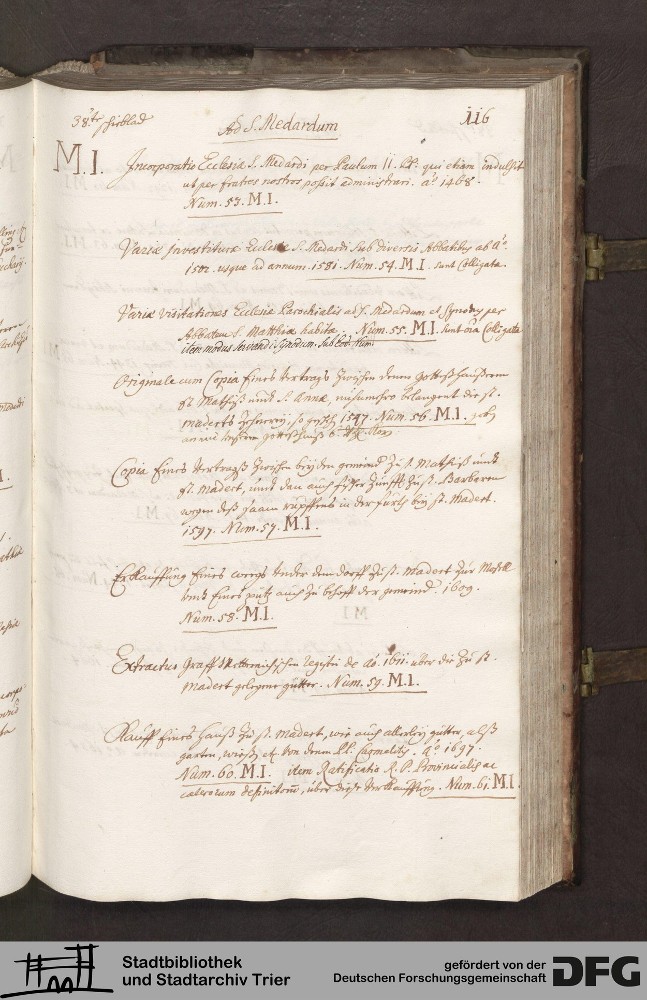 38te schieblad
Ad S. Medardum
116
M.I.
Incorporatio Ecclesiæ S. Medardi per Paulum II. PP. qui etiam indulsit
ut per fratres nostros possit administrari. aō 1468.
Num. 53. M.I.
Variæ Investituræ Ecclesiæ S. Medardi sub diversis Abbatibus ab aō.
1502. usque ad annum. 1581. Num. 54. M.I. sunt Colligata.
Variæ visitationes Ecclesiæ Parochialis ad S. Medardum et Synody per
Abbatem S. Matthiæ habitæ. Num. 55. M.I. sunt oīa Colligata
item modus servandi Synodum. sub eod. Num.
Originale cum Copia Eines Vertrags zwischen denen Gottshäusern
St. Mathiß undt S. Annæ, belangent die st.
Maderts 1547. Num. 56. M.I.
Copia Eines Vertragß zwischen beyden gemeind zu S. Mathiß undt
st. Madert, undt dan auch zu S. Barbaren
wegen deß in der bey st. Madert.
1597. Num. 57. M.I.
Erkauffung Eines wegs under dem dorff zu S. Madert zur Mosell
undt Eines auch zu behoff der gemeind. 1609.
Num. 58. M.I.
Extractus Graff de aō. 1611. über die zu st.
Madert gelegene gütter. Num. 59. M.I.
Kauff Eines hauß zu st. Madert, wie auch allerley gütter, alß
garten, wießen etc von denen PP. Carmelitis. Aō 1697.
Num. 60. M.I. item Ratificatio R. P. Provincialis ac
cæterorum definitorū, über diese Verkauffung. Num. 61. M.I
Stadtbibliothek
und Stadtarchiv Trier
gefördert von der
Deutschen Forschungsgemeinschaft
DFG